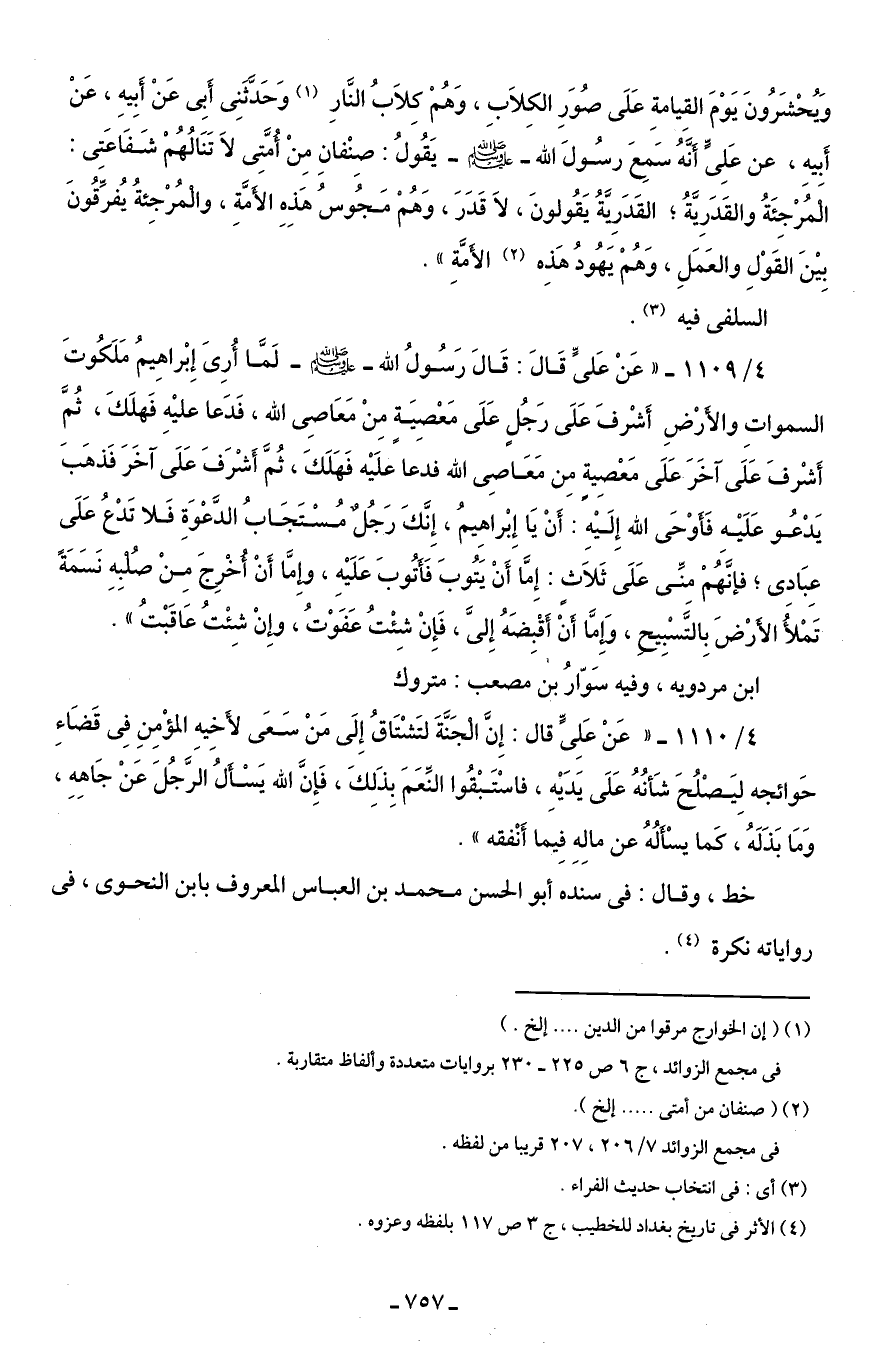 وَيُحْشَرُونَ يَوْمَ القيامةِ عَلَى صُوَرِ الكِلاَبِ ، وَهُمْ كِلاَبُ النَّارِ (١) وَحَدَّثَنِى أَبِى عَنْ أَبِيهِ ، عَنْ
أَبِيهِ ، عن عَلِىٍّ أَنَّهُ سَمِعَ رسُولَ الله ـ ﷺ ـ يَقُولُ : صِنْفانِ مِنْ أُمَّتِى لاَ تَنَالُهُمْ شَفَاعَتِى :
الْمُرْجِئَةُ والقَدَرِيَّةُ ؛ القَدَرِيَّةُ يَقُولونَ ، لاَ قَدَرَ ، وَهُمْ مَجُوسُ هَذِهِ الأمَّةِ ، والْمُرْجئةُ يُفرِّقُونَ
بيْنَ القَوْلِ والعَمَلِ ، وَهُمْ يَهُودُ هَذِهِ (٢) الأمَّةِ » .
السلفى فيه (٣) .
٤/ ١١٠٩ ـ « عَنْ عَلىٍّ قَالَ : قَالَ رَسُولُ الله ـ ﷺ ـ لَمَّا أُرِىَ إبْراهيمُ مَلَكُوتَ
السمواتِ والأَرْضِ أَشْرفَ عَلَى رَجُلٍ عَلَى مَعْصِيَةٍ مِنْ مَعَاصِى الله ، فَدَعا عليْهِ فَهلَكَ ، ثُمَّ
أَشْرفَ عَلَى آخَرَ عَلَى مَعْصِيةٍ مِن مَعَاصِى الله فدعا عَلَيْهِ فَهَلَكَ ، ثُمَّ أَشْرَفَ عَلَى آخَرَ فَذهَبَ
يَدْعُو عَلَيْهِ فَأَوْحَى الله إلَيْهِ : أَنْ يَا إِبْراهيمُ ، إنَّكَ رَجُلٌ مُسْتَجَابُ الدَّعْوَةِ فَلا تَدْعُ عَلَى
عِبَادى ؛ فإنَّهُمْ مِنِّى عَلَى ثَلاَثٍ : إمَّا أنْ يَتُوبَ فَأَتُوبَ عَلَيْهِ ، وإمَّا أَنْ أُخْرِجَ مِنْ صُلْبِهِ نَسَمَةً
تَمْلأُ الأَرْضَ بِالتَّسْبِيحِ ، وَإمَّا أَنْ أَقْبِضَهُ إلىَّ ، فَإنْ شئْتُ عَفَوْتُ ، وإنْ شئْتُ عَاقَبْتُ » .
ابن مردويه ، وفيه سَوّارُ بن مصعب : متروك
٤/ ١١١٠ ـ « عَنْ عَلىٍّ قال : إنَّ الْجَنَّةَ لتَشْتَاقُ إلَى مَنْ سَعَى لأخيهِ المؤْمِنِ فِى قَضَاءِ
حَوائجه لِيَصْلُحَ شَأنُهُ عَلَى يَدَيْهِ ، فاسْتَبْقُوا النِّعَمَ بِذَلِكَ ، فَإنَّ الله يَسْأَلُ الرَّجُلَ عَنْ جَاهِهِ ،
وَمَا بَذَلَهُ ، كَما يسْأَلُهُ عن مالِهِ فِيما أنْفقه » .
خط ، وقال : فى سنده أبو الحسن محمد بن العباس المعروف بابن النحوى ، فى
رواياته نكرة (٤) .
(١) ( إن الخوارج مرقوا من الدين .... إلخ . )
فى مجمع الزوائد ، ج ٦ ص ٢٢٥ ـ ٢٣٠ بروايات متعددة وألفاظ متقاربة .
(٢) ( صنفان من أمتى ..... إلخ ).
فى مجمع الزوائد ٧/ ٢٠٦ ، ٢٠٧ قريبا من لفظه .
(٣) أى : فى انتخاب حديث الفراء .
(٤) الأثر فى تاريخ بغداد للخطيب ، ج ٣ ص ١١٧ بلفظه وعزوه .
ـ ٧٥٧ ـ